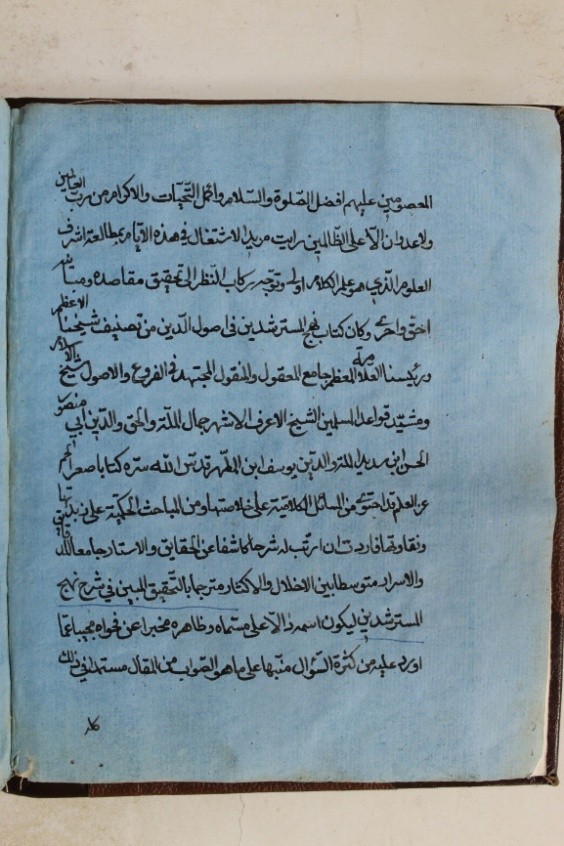 المعصومين عليهم افضل الصّلوة والسّلام واكمل التّحيّات والاكرام من ربّ العالمين
ولا عدوان الّا على الظّالمين رايت مريد الاشتغال فى هذه الايّام بمطالعة اشرف
العلوم الّذي هو علم الكلام اولى وتوجّه ركاب النّظر الى تحقيق مقاصده ومباينه
احقّ واحرى وكان كتاب نهج المسترشدين فى اصول الدّين من تصنيف شيخنا الاعظم
ورئيسنا العلّامة المعظم جامع المعقول والمنقول المجتهد فى الفروع والاصول شيخ الاسلام
ومشيّد قواعد المسلمين الشيخ الاعرف الاشهر جمال الملّة والحق والدّين أبي منصور
الحسن ابن سديد الملّة والدّين يوسف ابن المطّهر قدّس اللّه سرّه كتابا صغر الحجم
غزير العلم قد احتوى من المسائل الكلاميّة على خلاصتها ومن المباحث الحكمية على زبدتها
ونقاوتها فاردت ان ارتّب له شرحا كاشفا عن الحقايق والاستار جامعا للدقايق
والاسرار متوسطا بين الاخلال والاكثار مترجما بالتّحقيق المبين في شرح نهج
المسترشدين ليكون اسمه دالّا على مسمّاه وظاهره مخبرا عن فحواه مجيبا عمّا
اورد عليه من كثرة السّؤال منبّها على ما هو الصّواب من المقال مستمدا في ذلك